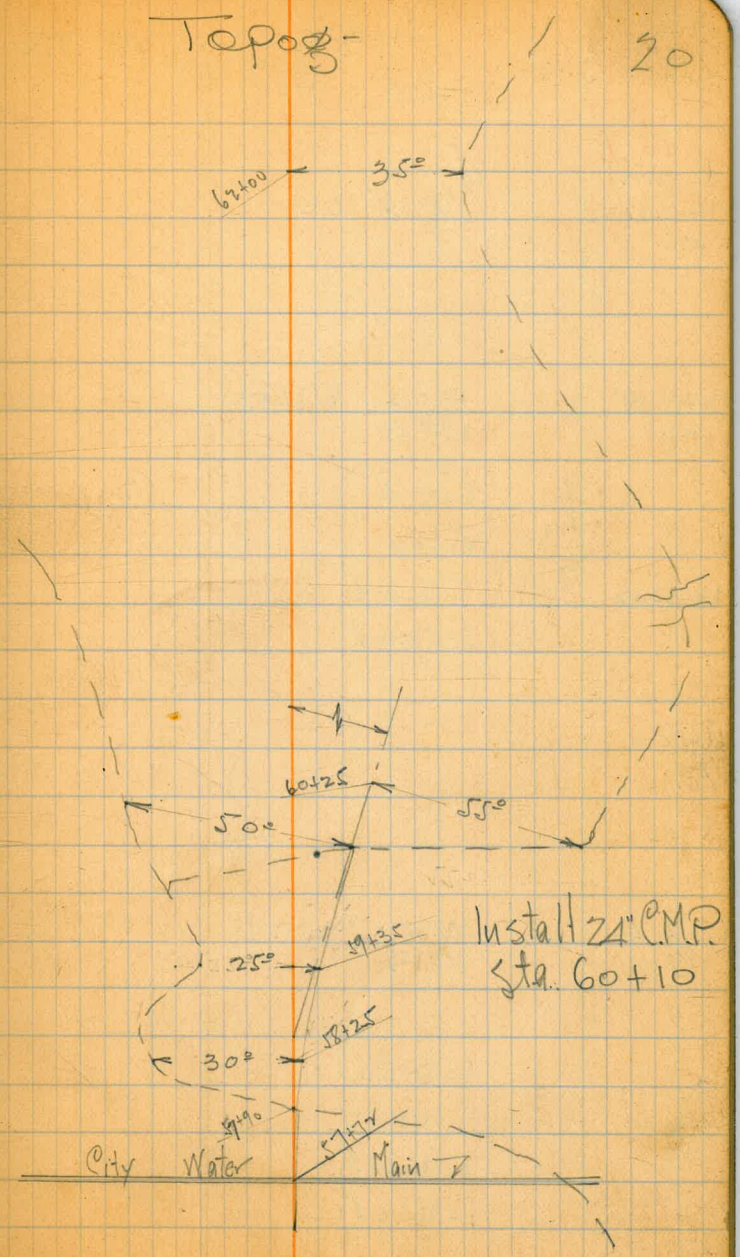 Topog- 20
62+00 35º
60+25
50º 55º
Install 24" C.M.P.
Sta. 60+10
25º 59+35
58+25
30º
57+90
57+72
City Water Main